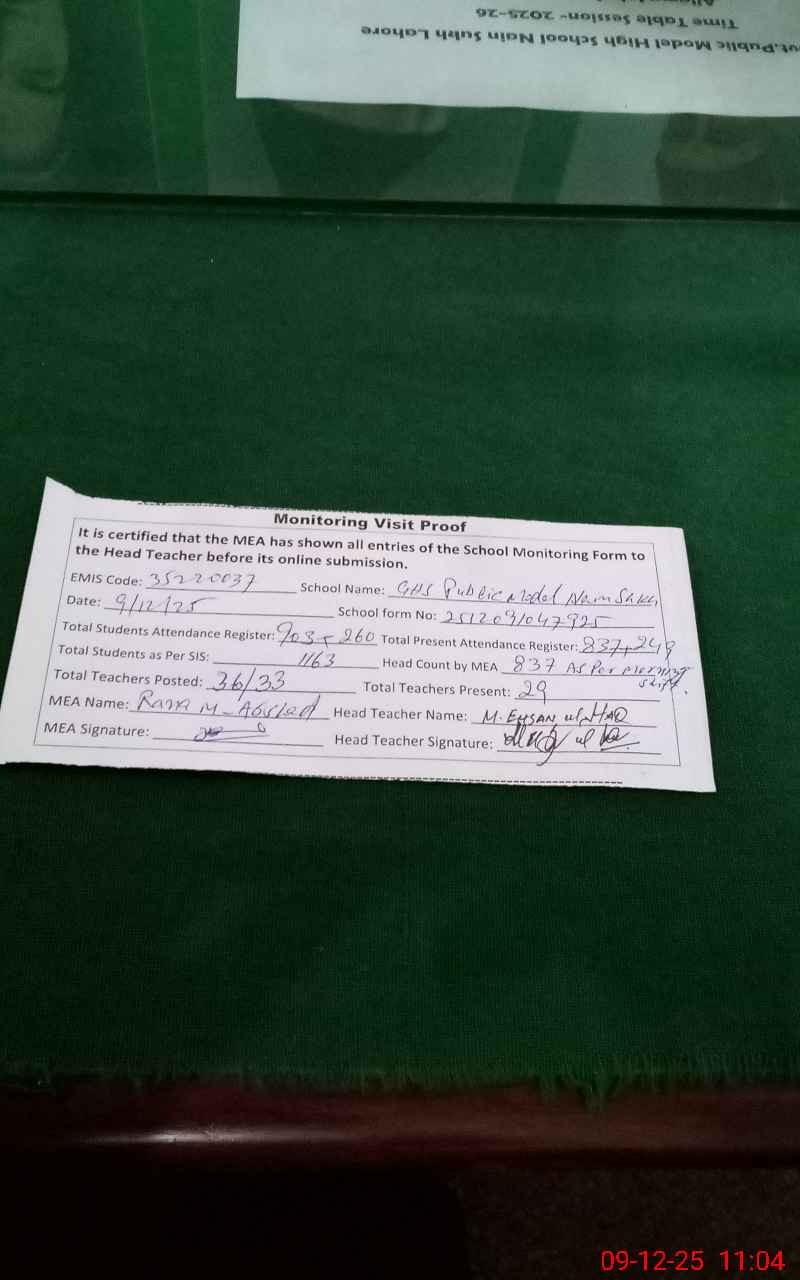 Time Table Session- 2025-26
ut.Public Model High School Nain Sukh Lahore
Monitoring Visit Proof
It is certified that the MEA has shown all entries of the School Monitoring Form to
the Head Teacher before its online submission.
EMIS Code: 35220037 School Name: GHS Public Model Nain Sukh
Date: 9/12/25 School form No: 251209/047925
Total Students Attendance Register: 903+260 Total Present Attendance Register: 837+249
Total Students as Per SIS: 1163 Head Count by MEA 837 As Per morning shift.
Total Teachers Posted: 36/33 Total Teachers Present: 29
MEA Name: Rana M. Head Teacher Name: M. EHSAN ul HAQ
MEA Signature: Head Teacher Signature:
09-12-25 11:04